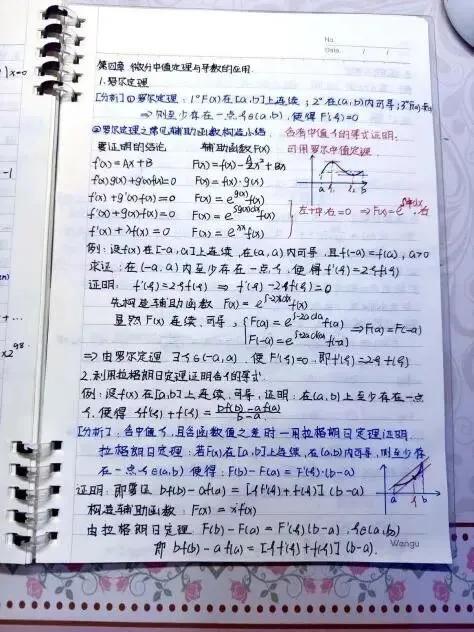 No.
Date. / /
第四章 微分中值定理与导数的应用.
1.罗尔定理
[分析] ① 罗尔定理:1° F(x)在[a,b]上连续;2° 在(a,b)内可导;3°
⇒ 则至少存在一点ξ∈(a,b),使得F'(ξ)=0
② 罗尔定理之常见辅助函数构造小结. 含有中值ξ的等式证明:
要证明的结论 辅助函数F(x) 可用罗尔中值定理
f'(x)=Ax+B
f'(x)g(x)+g'(x)f(x)=0 F(x)=f(x)·g(x)
f'(x)+g'(x)f(x)=0 F(x)=e^{g(x)}f(x)
f'(x)+g(x)f(x)=0 F(x)=e^{∫g(x)dx}f(x) 左=中,右=0 ⇒
f'(x)+λf(x)=0 F(x)=e^{λx}f(x)
例:设f(x)在[-a,a]上连续,在(-a,a)内可导,且f(-a)=f(a),a>0
求证:在(-a,a)内至少存在一点ξ,使得f'(ξ)=2ξf(ξ)
证明: f'(ξ)=2ξf(ξ) ⇒ f'(ξ)-2ξf(ξ)=0
先构造辅助函数 F(x)=e^{∫-2xdx}f(x)
显然F(x)连续,可导, F(a)= f(a) ⇒F(a)=F(-a)
F(-a)= f(-a)
⇒ 由罗尔定理 ∃ξ∈(-a,a),使F'(ξ)=0,即f'(ξ)=2ξf(ξ)
2.利用拉格朗日定理证明含ξ的等式
例:设f(x)在[a,b]上连续,可导,证明:在(a,b)上至少存在一点
ξ,使得 ξf'(ξ)+f(ξ)=\frac{bf(b)-af(a)}{b-a}
[分析]:含中值ξ,且含函数值之差时一用拉格朗日定理证明.
拉格朗日定理:若F(x)在[a,b]上连续,在(a,b)内可导,则至少存
在一点ξ∈(a,b) 使得:F(b)-F(a)=F'(ξ)·(b-a)
证明:即要证 bf(b)-af(a)=[ξf'(ξ)+f(ξ)](b-a)
构造辅助函数:F(x)=xf(x)
由拉格朗日定理 F(b)-F(a)=F'(ξ)(b-a),ξ∈(a,b)
即 bf(b)-af(a)=[ξf'(ξ)+f(ξ)](b-a).
Wengu